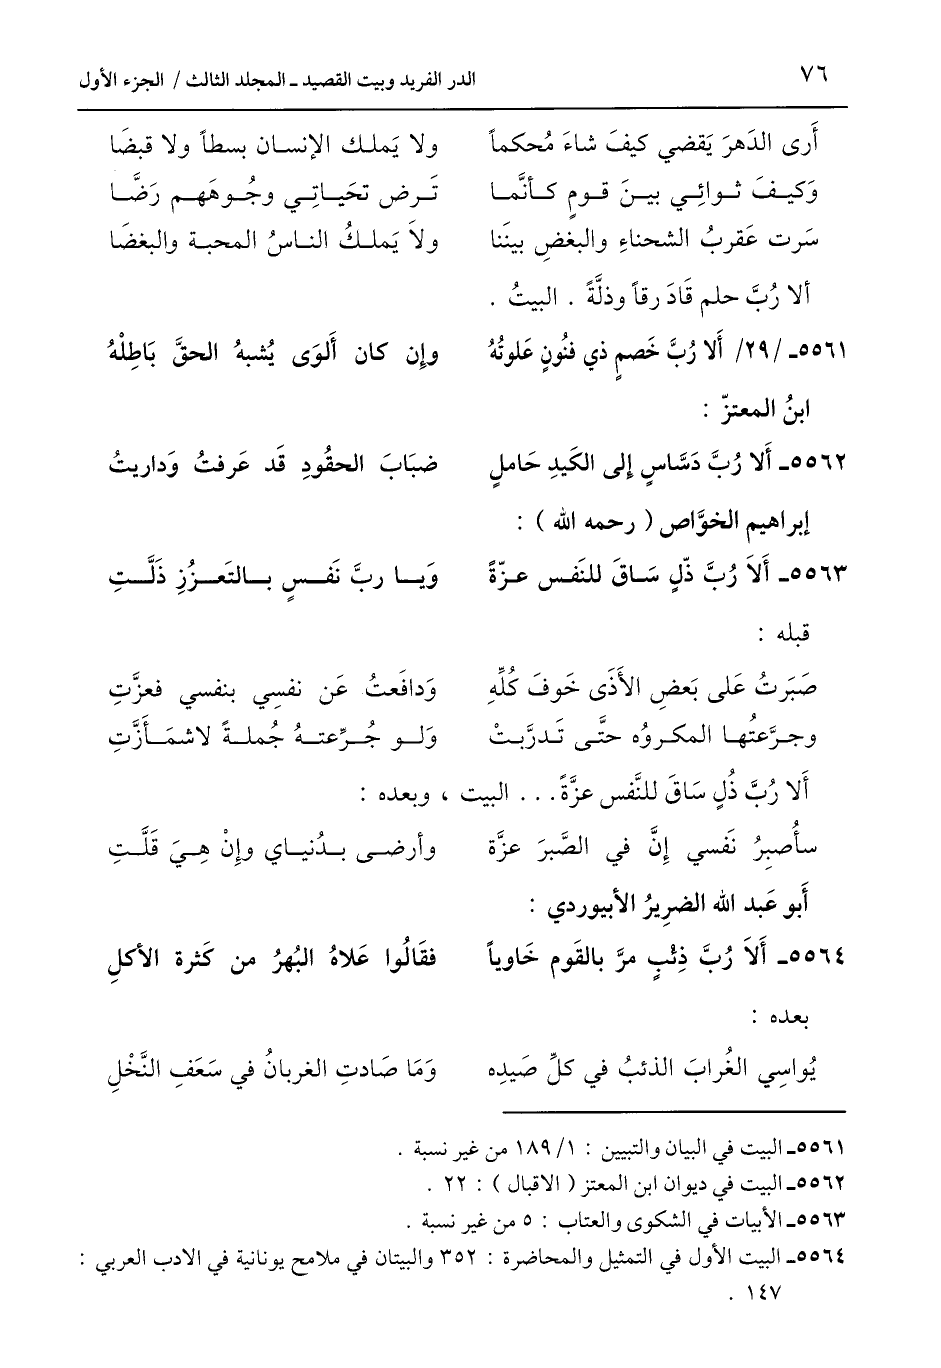 ٧٦ الدر الفريد وبيت القصيد ـ المجلد الثالث / الجزء الأول
أَرى الدَهرَ يَقضي كيفَ شاءَ مُحكماً ولا يَملك الإنسان بسطاً ولا قبضَا
وَكيفَ ثوائِي بينَ قومٍ كأنَّما تَرض تحَياتِي وجُوهَهم رَضَّا
سَرت عَقربُ الشحناءِ والبغضِ بينَنا ولاَ يَملكُ الناسُ المحبة والبغضَا
ألا رُبَّ حلم قَادَ رقاً وذلَّةً . البيتُ .
٥٥٦١ـ /٢٩/ أَلا رُبَّ خَصمٍ ذي فنُونٍ عَلوتُهُ وإِن كان أَلوَى يُشبهُ الحقَّ بَاطِلُهُ
ابنُ المعتزّ :
٥٥٦٢ـ أَلا رُبَّ دَسَّاسٍ إِلى الكَيدِ حَاملٍ ضبَابَ الحقُودِ قَد عَرفتُ وَداريتُ
إبراهيم الخوَّاص ( رحمه الله ) :
٥٥٦٣ـ أَلاَ رُبَّ ذّلٍ سَاقَ للنَفس عزّةً وَيا ربَّ نَفسٍ بالتَعزُزِ ذَلَّتِ
قبله :
صَبَرتُ عَلى بَعضِ الأَذَى خَوفَ كُلِّهِ وَدافَعتُ عَن نفسِي بنفسي فعزَّتِ
وجرَّعتُها المكروُه حتَّى تَدرَّبتْ وَلو جُرِّعتهُ جُملةً لاشمَأَزَّتِ
أَلا رُبَّ ذُلٍ سَاقَ للنَّفس عزَّةً... البيت ، وبعده :
سأُصبِرُ نَفسي إِنَّ في الصَّبرَ عزَّة وأَرضى بدُنياي وإِنْ هِيَ قَلَّتِ
أَبو عَبد الله الضرِيرُ الأَبيوردي :
٥٥٦٤ـ أَلاَ رُبَّ ذِئبٍ مرَّ بالقَوم خَاوياً فقَالُوا عَلاهُ البُهرُ من كَثرة الأكلِ
بعده :
يُواسِي الغُرابَ الذئبُ في كلِّ صَيدِه وَمَا صَادتِ الغربانُ في سَعَفِ النَّخْلِ
٥٥٦١ـ البيت في البيان والتبيين : ١/ ١٨٩ من غير نسبة .
٥٥٦٢ـ البيت في ديوان ابن المعتز ( الاقبال ) : ٢٢ .
٥٥٦٣ـ الأبيات في الشكوى والعتاب : ٥ من غير نسبة .
٥٥٦٤ـ البيت الأول في التمثيل والمحاضرة : ٣٥٢ والبيتان في ملامح يونانية في الادب العربي :
١٤٧ .